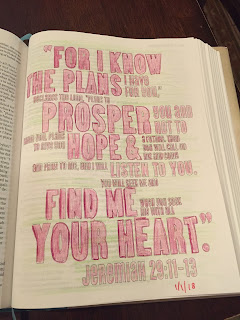 "FOR I KNOW
THE PLANS I HAVE
FOR YOU,"
DECLARES THE LORD, "PLANS TO
PROSPER YOU AND
NOT TO
HARM YOU, PLANS
TO GIVE YOU
HOPE & A FUTURE. THEN
YOU WILL CALL ON
ME AND COME
AND PRAY TO ME, AND I WILL LISTEN TO YOU.
YOU WILL SEEK ME AND
FIND ME WHEN YOU SEEK
ME WITH ALL
YOUR HEART."
Jeremiah 29:11-13